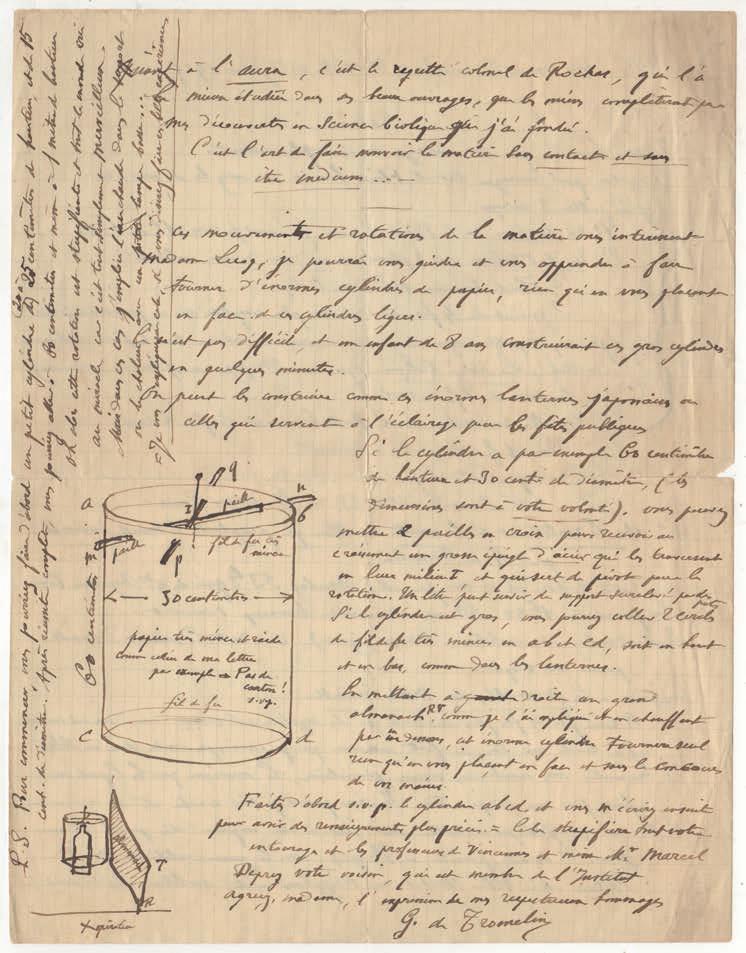 Quant à l'aura, c'est le regretté colonel de Rochas, qui l'a
mieux étudiée dans ses beaux ouvrages, que les miens complèteront par
mes découvertes en Science biolique que j'ai fondée.
C'est l'art de faire mouvoir la matière sans contact et sans
être médium...
Ces mouvements et rotations de la matière vous intéressent
Madame Lecoq, je pourrai vous guider et vous apprendre à faire
tourner d'énormes cylindres de papier, rien qu'en vous plaçant
en face de ces cylindres légers.
n'est pas difficile, et un enfant de 8 ans construirait ces gros cylindres
en quelques minutes.
On peut les construire comme ces énormes lanternes japonaises ou
celles qui servent à l'éclairage pour les fêtes publiques
Si le cylindre a par exemple 60 centimètres
de hauteur et 30 cent. de diamètre, (les
dimensions sont à votre volonté), vous pouvez
mettre 2 pailles en croix pour recevoir au
croisement une grosse épingle d'acier qui les traversent
en leur milieu I, et qui sert de pivot pour la
rotation. Un litre peut servir de support
Si le cylindre est gros, vous pouvez coller 2 petits cercles
de fil de fer très minces en ab et cd, soit en haut
et en bas, comme dans les lanternes.
En mettant à droite un grand
almanach RT, comme je l'ai expliqué et en chauffant
par en dessous, cet énorme cylindre tournera seul
rien qu'en vous plaçant en face et sans le concours
de vos mains.
Faites d'abord s.v.p. le cylindre abcd et vous m'écrirez ensuite
pour avoir des renseignements plus précis. = Cela stupéfiera tout votre
entourage et les professeurs de Vincennes et même Mr. Marcel
Deprez votre voisin, qui est membre de l'Institut
Agréez, madame, l'expression de mes respectueux hommages
G. de Tromelin
a
q
I
paille
n
b
paille
p
fil de fer très
mince
30 centimètres
60 centimètres
papier très mince et raide
comme celui de ma lettre
par exemple = Pas de
carton!
s.v.p.
fil de fer
c
d
T
R
P.S. Pour commencer, vous pourriez faire d'abord un petit cylindre de 25 centimètres de hauteur et de 15
cent. de diamètre. Après réussite complète, vous pourrez aller à 60 centimètres et même à 1 mètre de hauteur
oh alors cette rotation est stupéfiante et tout le monde crie
au miracle car c'est tout simplement merveilleux.
Mais dans ces cas j'emploie l'eau chaude dans le support
ou la chaleur avec une petite lampe basse...
= Je vous expliquerai cela, si vous désirez faire ces expériences